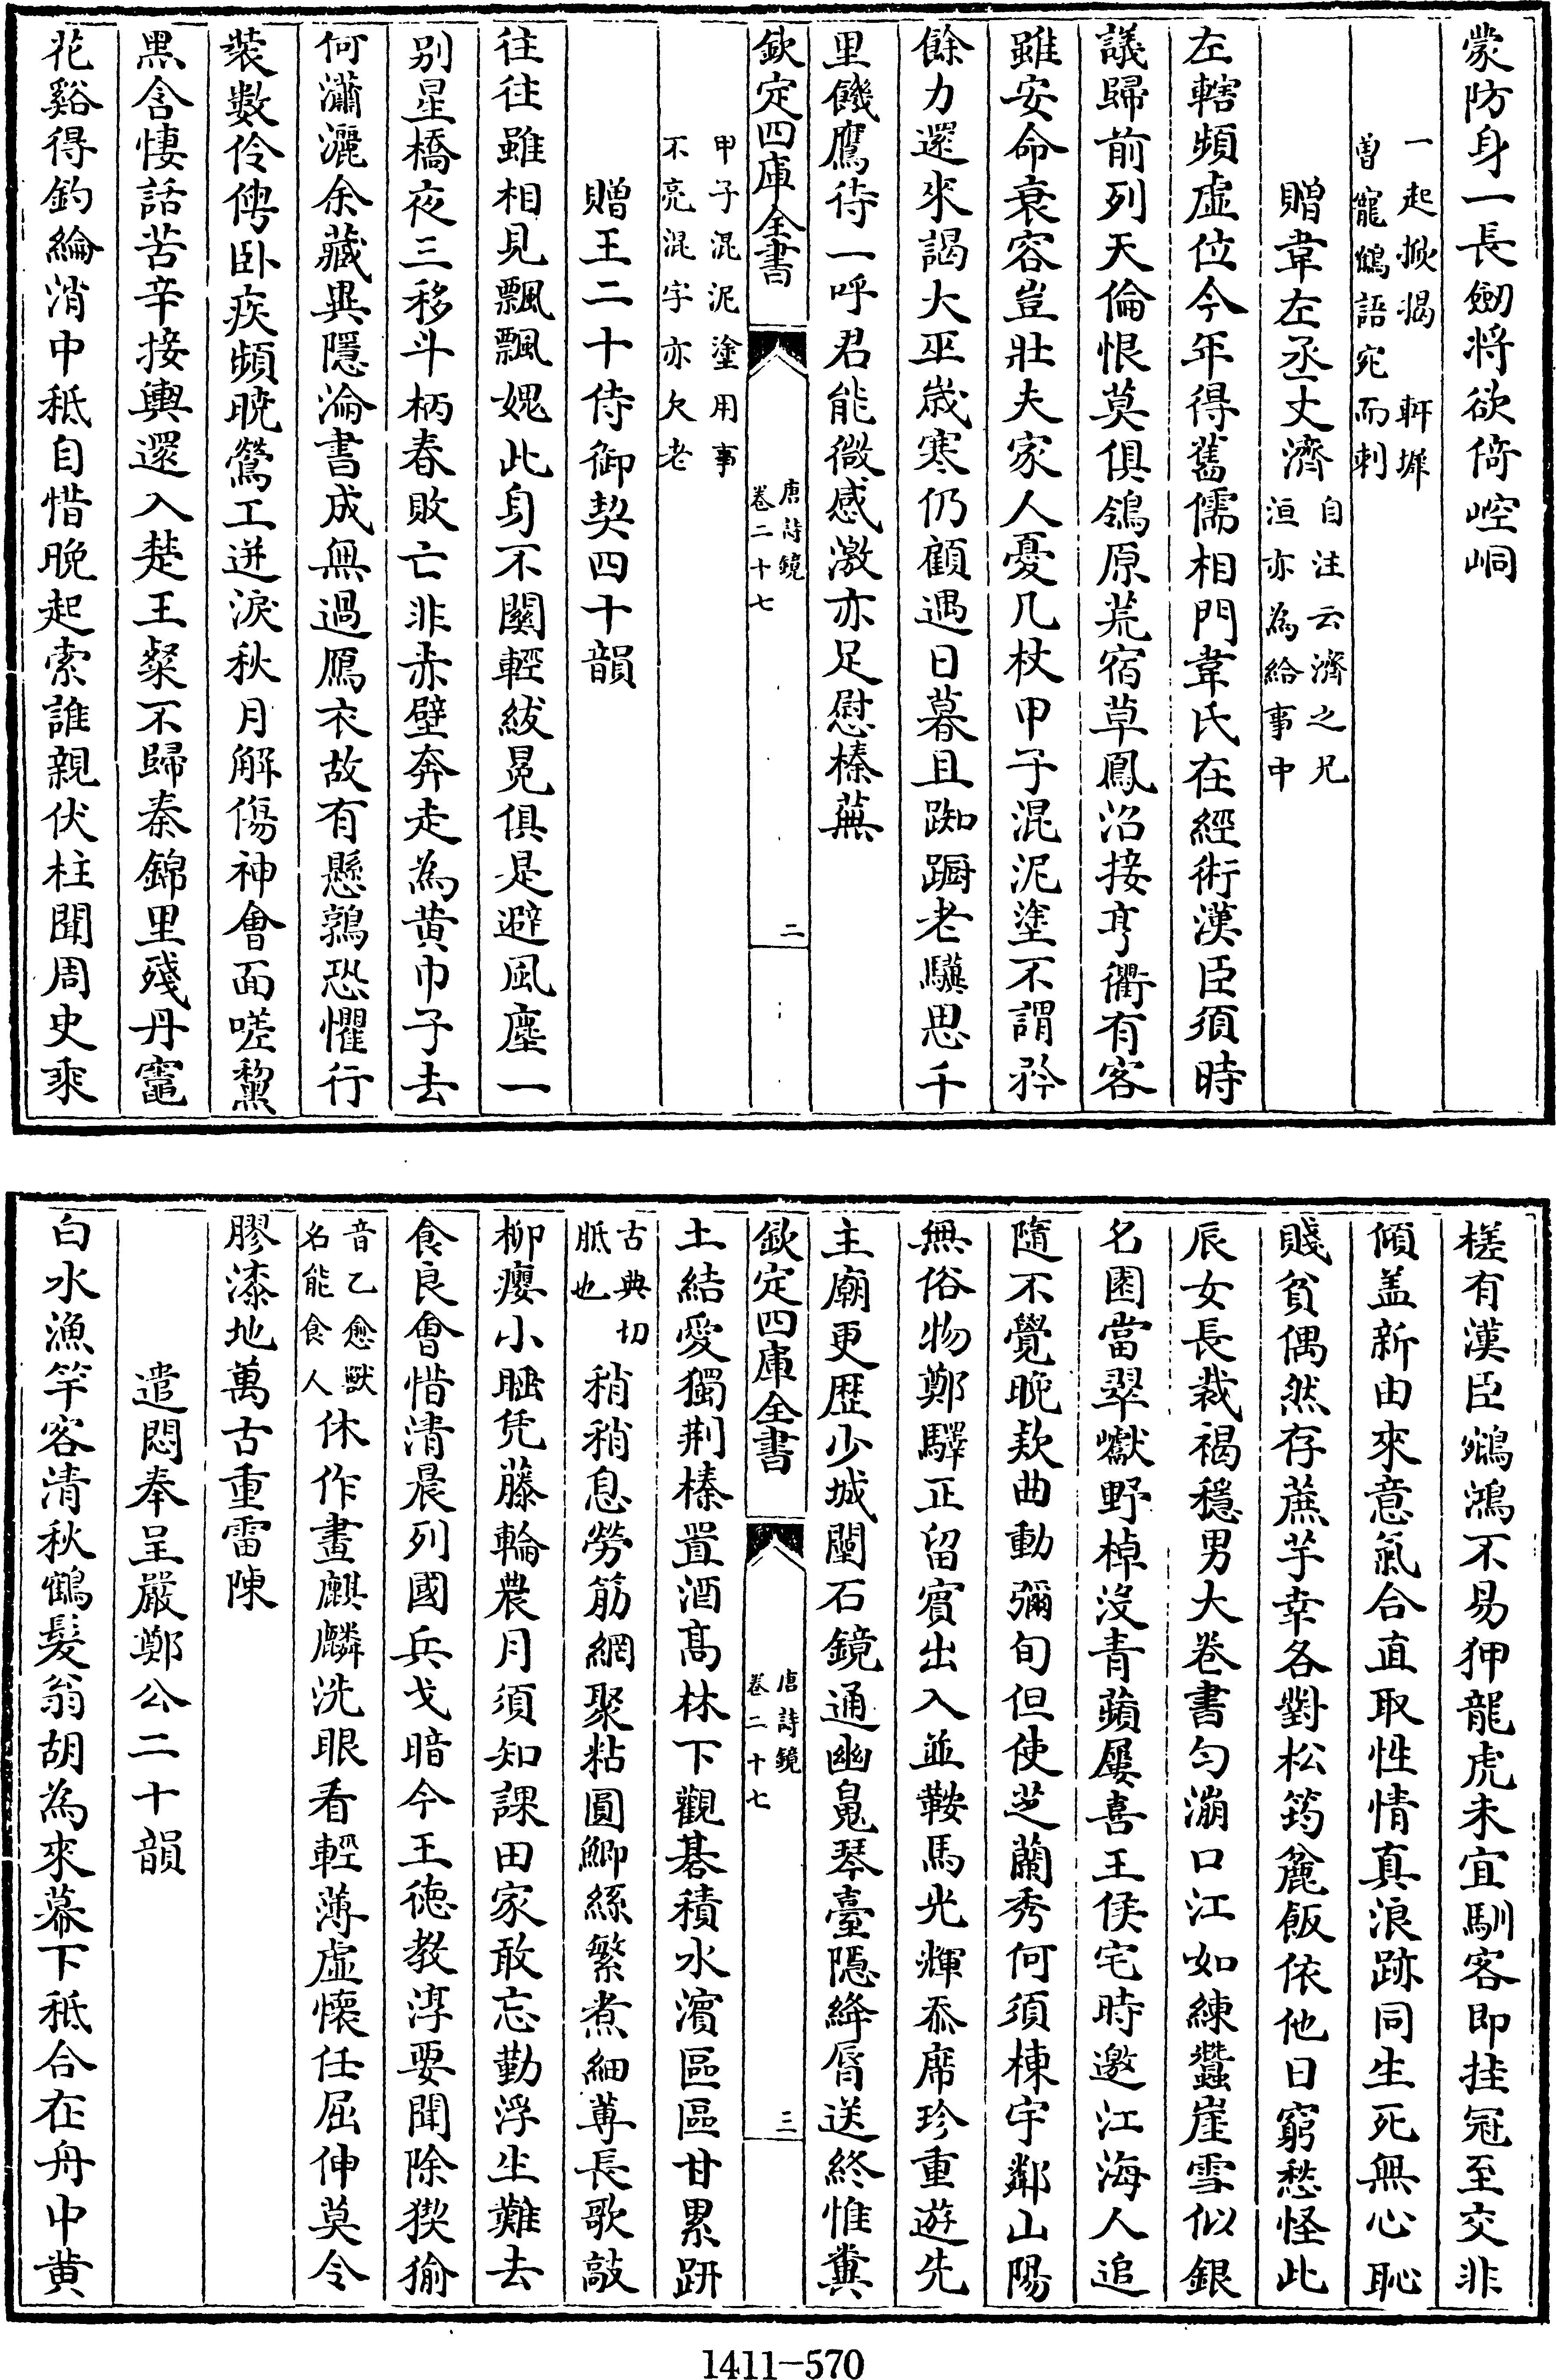 蒙防身一長劒將欲倚崆峒
一起掀掲軒墀
曽寵鶴語宛而刺
贈韋左丞丈濟自注云濟之兄
洹亦為給事中
左轄頻虛位今年得舊儒相門韋氏在經術漢臣須時
議歸前列天倫恨莫俱鴒原荒宿草鳳沼接亨衢有客
雖安命衰容豈壯夫家人憂几杖甲子混泥塗不謂矜
餘力還來謁大巫歲寒仍顧遇日暮且踟蹰老驥思千
里饑鷹待一呼君能微感激亦足慰榛蕪
欽定四庫全書
唐詩鏡
卷二十七
二
甲子混泥塗用事
不亮混字亦欠老
贈王二十侍御契四十韻
往往雖相見飄飄媿此身不關輕紱冕俱是避風塵一
别星橋夜三移斗柄春敗亡非赤壁奔走為黄巾子去
何瀟灑余藏異隱淪書成無過鴈衣故有懸鶉恐懼行
裝數伶俜卧疾頻曉鶯工迸淚秋月解傷神會面嗟黧
黒含悽話苦辛接輿還入楚王粲不歸秦錦里殘丹竈
花谿得釣綸消中秪自惜晚起索誰親伏柱聞周史乘
槎有漢臣鵷鴻不易狎龍虎未宜馴客即挂冠至交非
傾盖新由來意氣合直取性情真浪跡同生死無心恥
賤貧偶然存蔗芋幸各對松筠麄飯依他日窮愁怪此
辰女長裁褐穩男大卷書匀漰口江如練蠶崖雪似銀
名園當翠巘野棹沒青蘋屢喜王侯宅時邀江海人追
隨不覺晚欵曲動彌旬但使芝蘭秀何須棟宇鄰山陽
無俗物鄭驛正留賓出入並鞍馬光輝忝席珍重遊先
主廟更歴少城闉石鏡通幽䰟琴臺隱絳唇送終惟糞
欽定四庫全書
唐詩鏡
卷二十七
三
土結愛獨荆榛置酒髙林下觀碁積水濵區區甘累趼
古典切
胝也稍稍息勞筋網聚粘圓鯽絲繁煮細蓴長歌敲
柳癭小睡凭藤輪農月須知課田家敢忘勤浮生難去
食良㑹惜清晨列國兵戈暗今王徳教淳要聞除猰㺄
音乙愈獸
名能食人休作畫麒麟洗眼看輕薄虛懷任屈伸莫令
膠漆地萬古重雷陳
遣悶奉呈嚴鄭公二十韻
白水漁竿客清秋鶴髮翁胡為來幕下秪合在舟中黄
1411—570